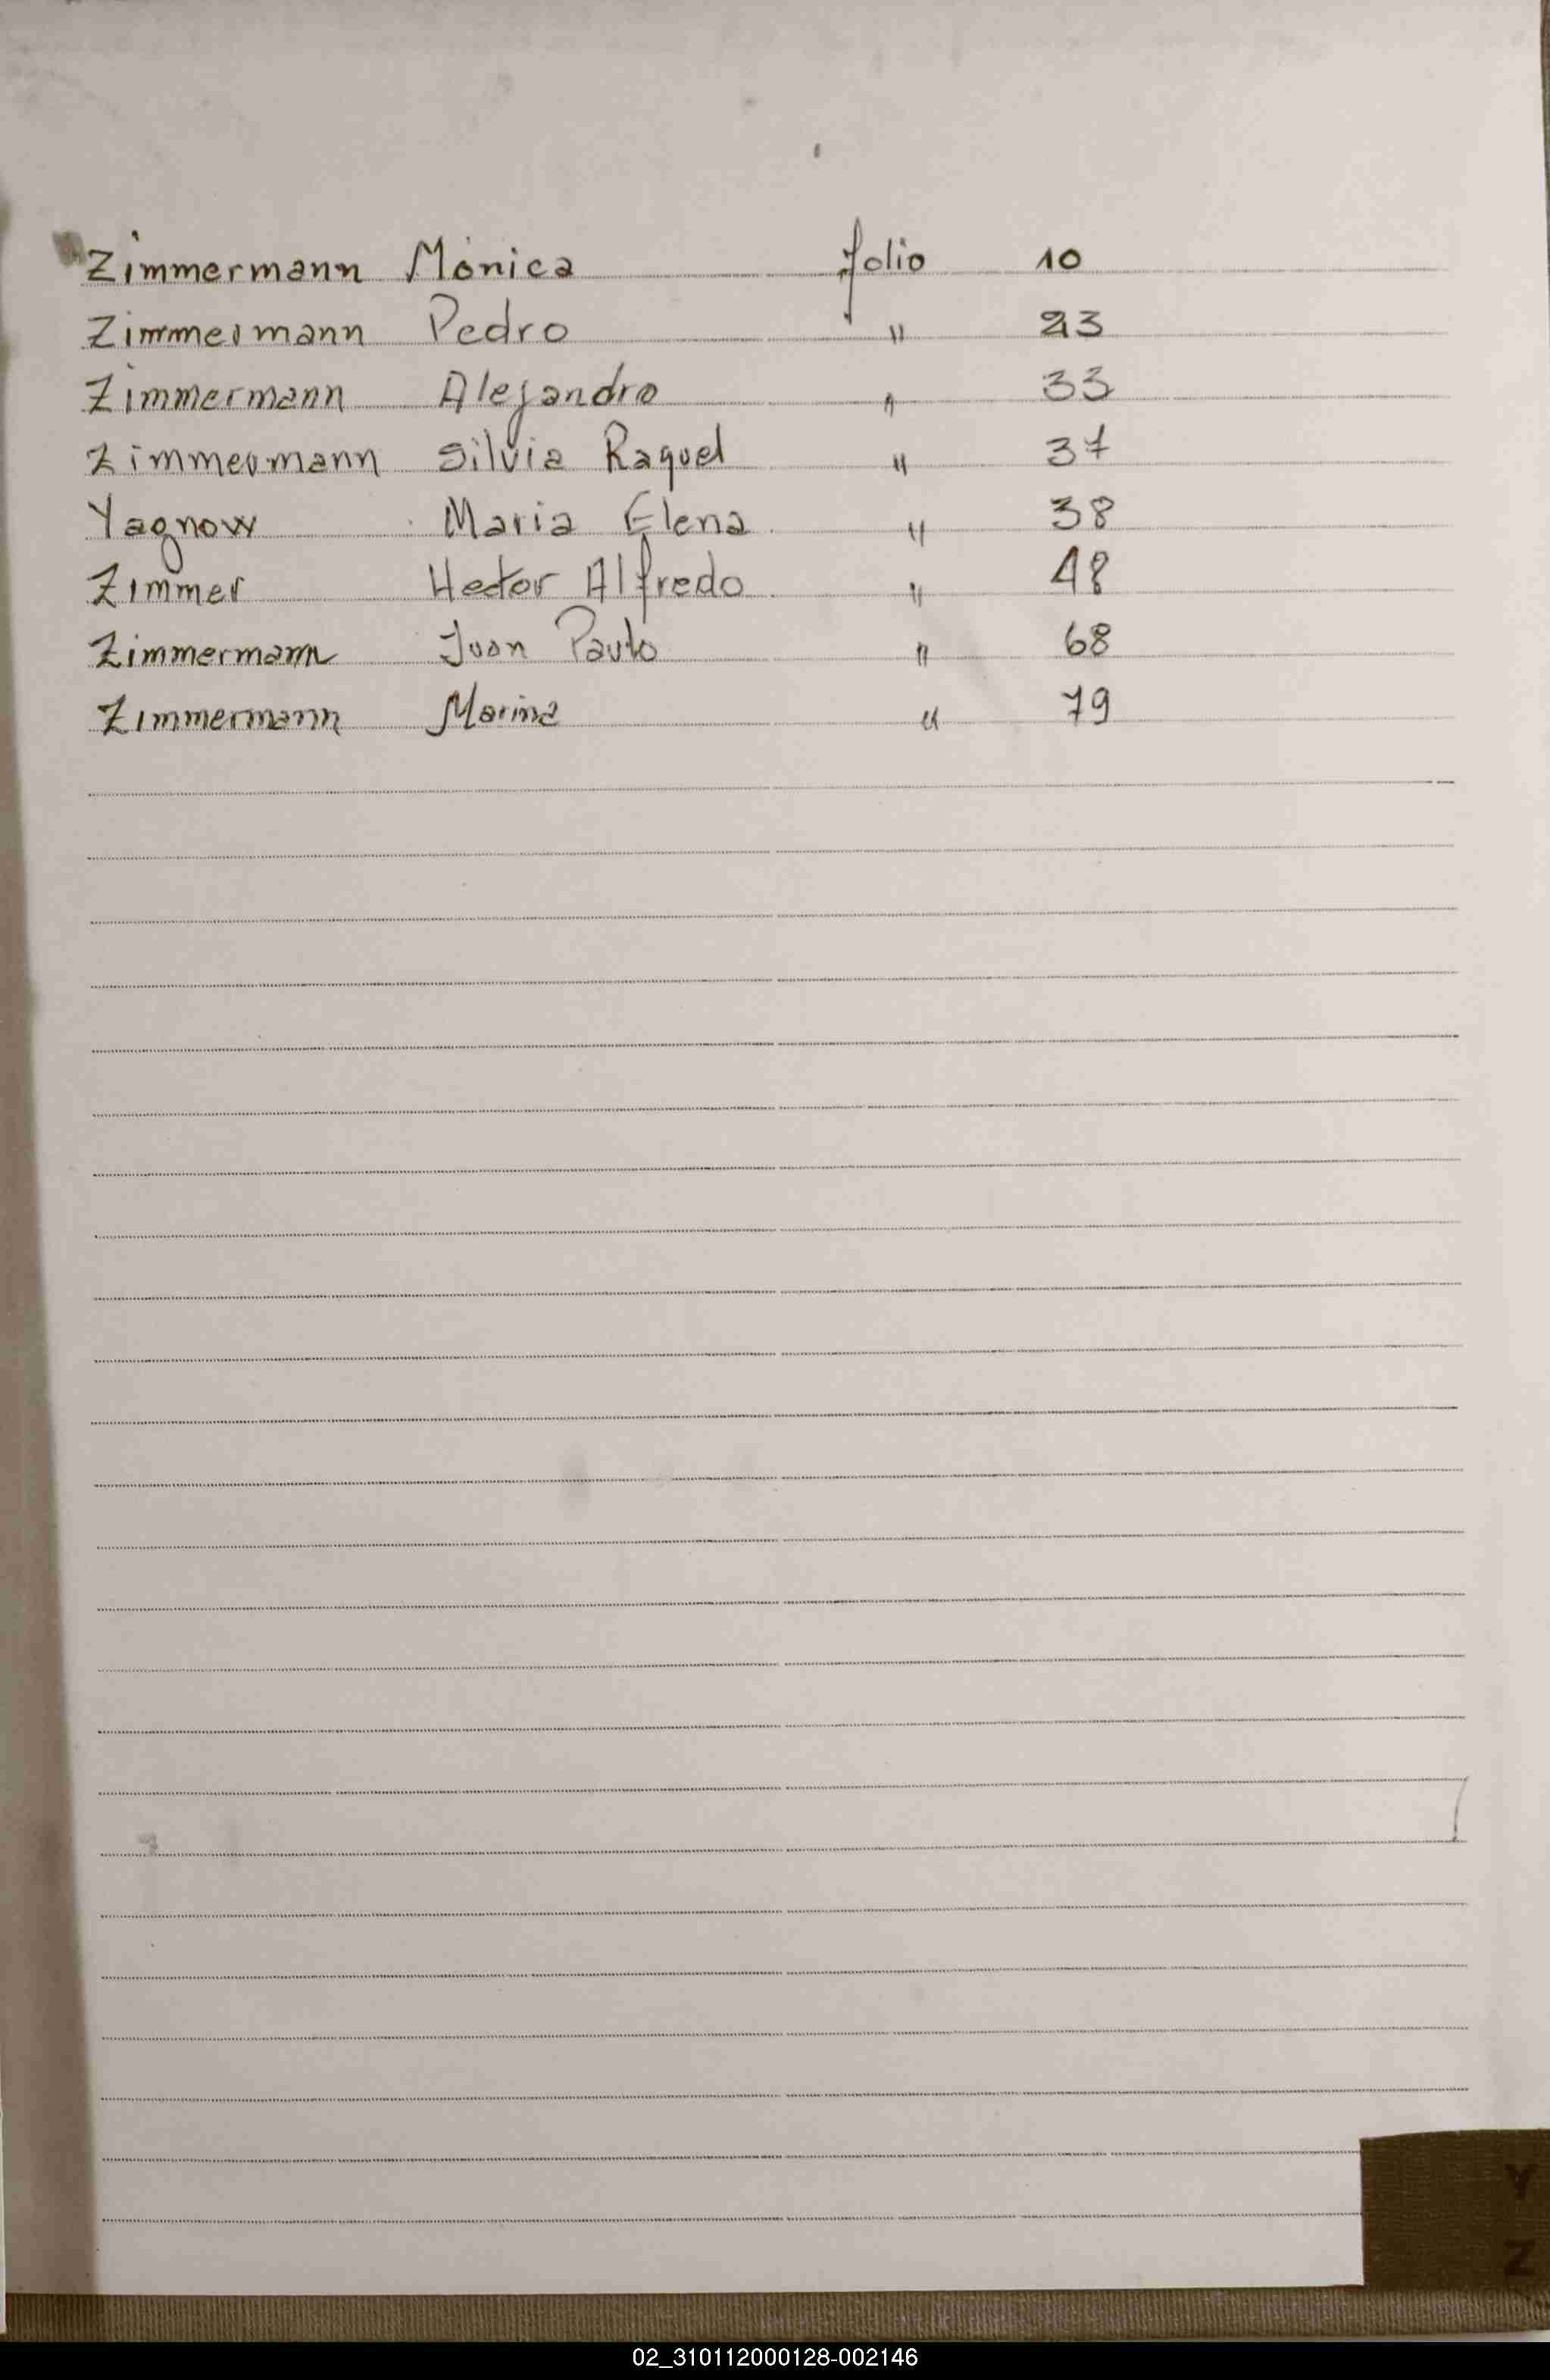 Zimmermann Mónica folio 10
Zimmermann Pedro " 23
Zimmermann Alejandro " 33
Zimmermann Silvia Raquel " 37
Yagnow Maria Elena " 38
Zimmer Hector Alfredo " 48
Zimmermann Juan Paulo " 68
Zimmermann Marina " 79
Y
Z
02_310112000128-002146